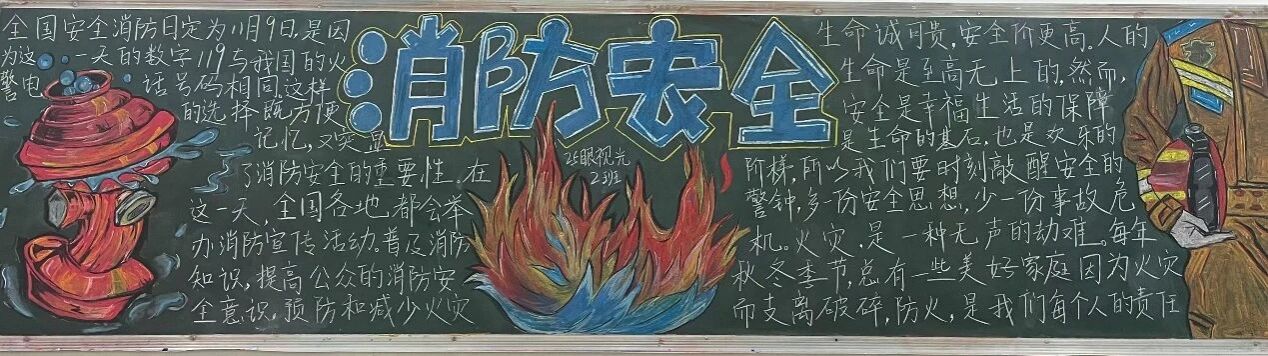 全国安全消防日定为11月9日,是因
为这一天的数字119与我国的火
警电话号码相同,这样
的选择既方便
记忆,又突显
了消防安全的重要性。在
这一天,全国各地都会举
办消防宣传活动。普及消防
知识,提高公众的消防安
全意识,预防和减少火灾
消防安全
25眼视光
2班
生命诚可贵,安全价更高。人的
生命是至高无上的,然而,
安全是幸福生活的保障
是生命的基石,也是欢乐的
阶梯,所以我们要时刻敲醒安全的
警钟,多一份安全思想,少一份事故危
机。火灾,是一种无声的劫难。每年
秋冬季节,总有一些美好家庭因为火灾
而支离破碎,防火,是我们每个人的责任